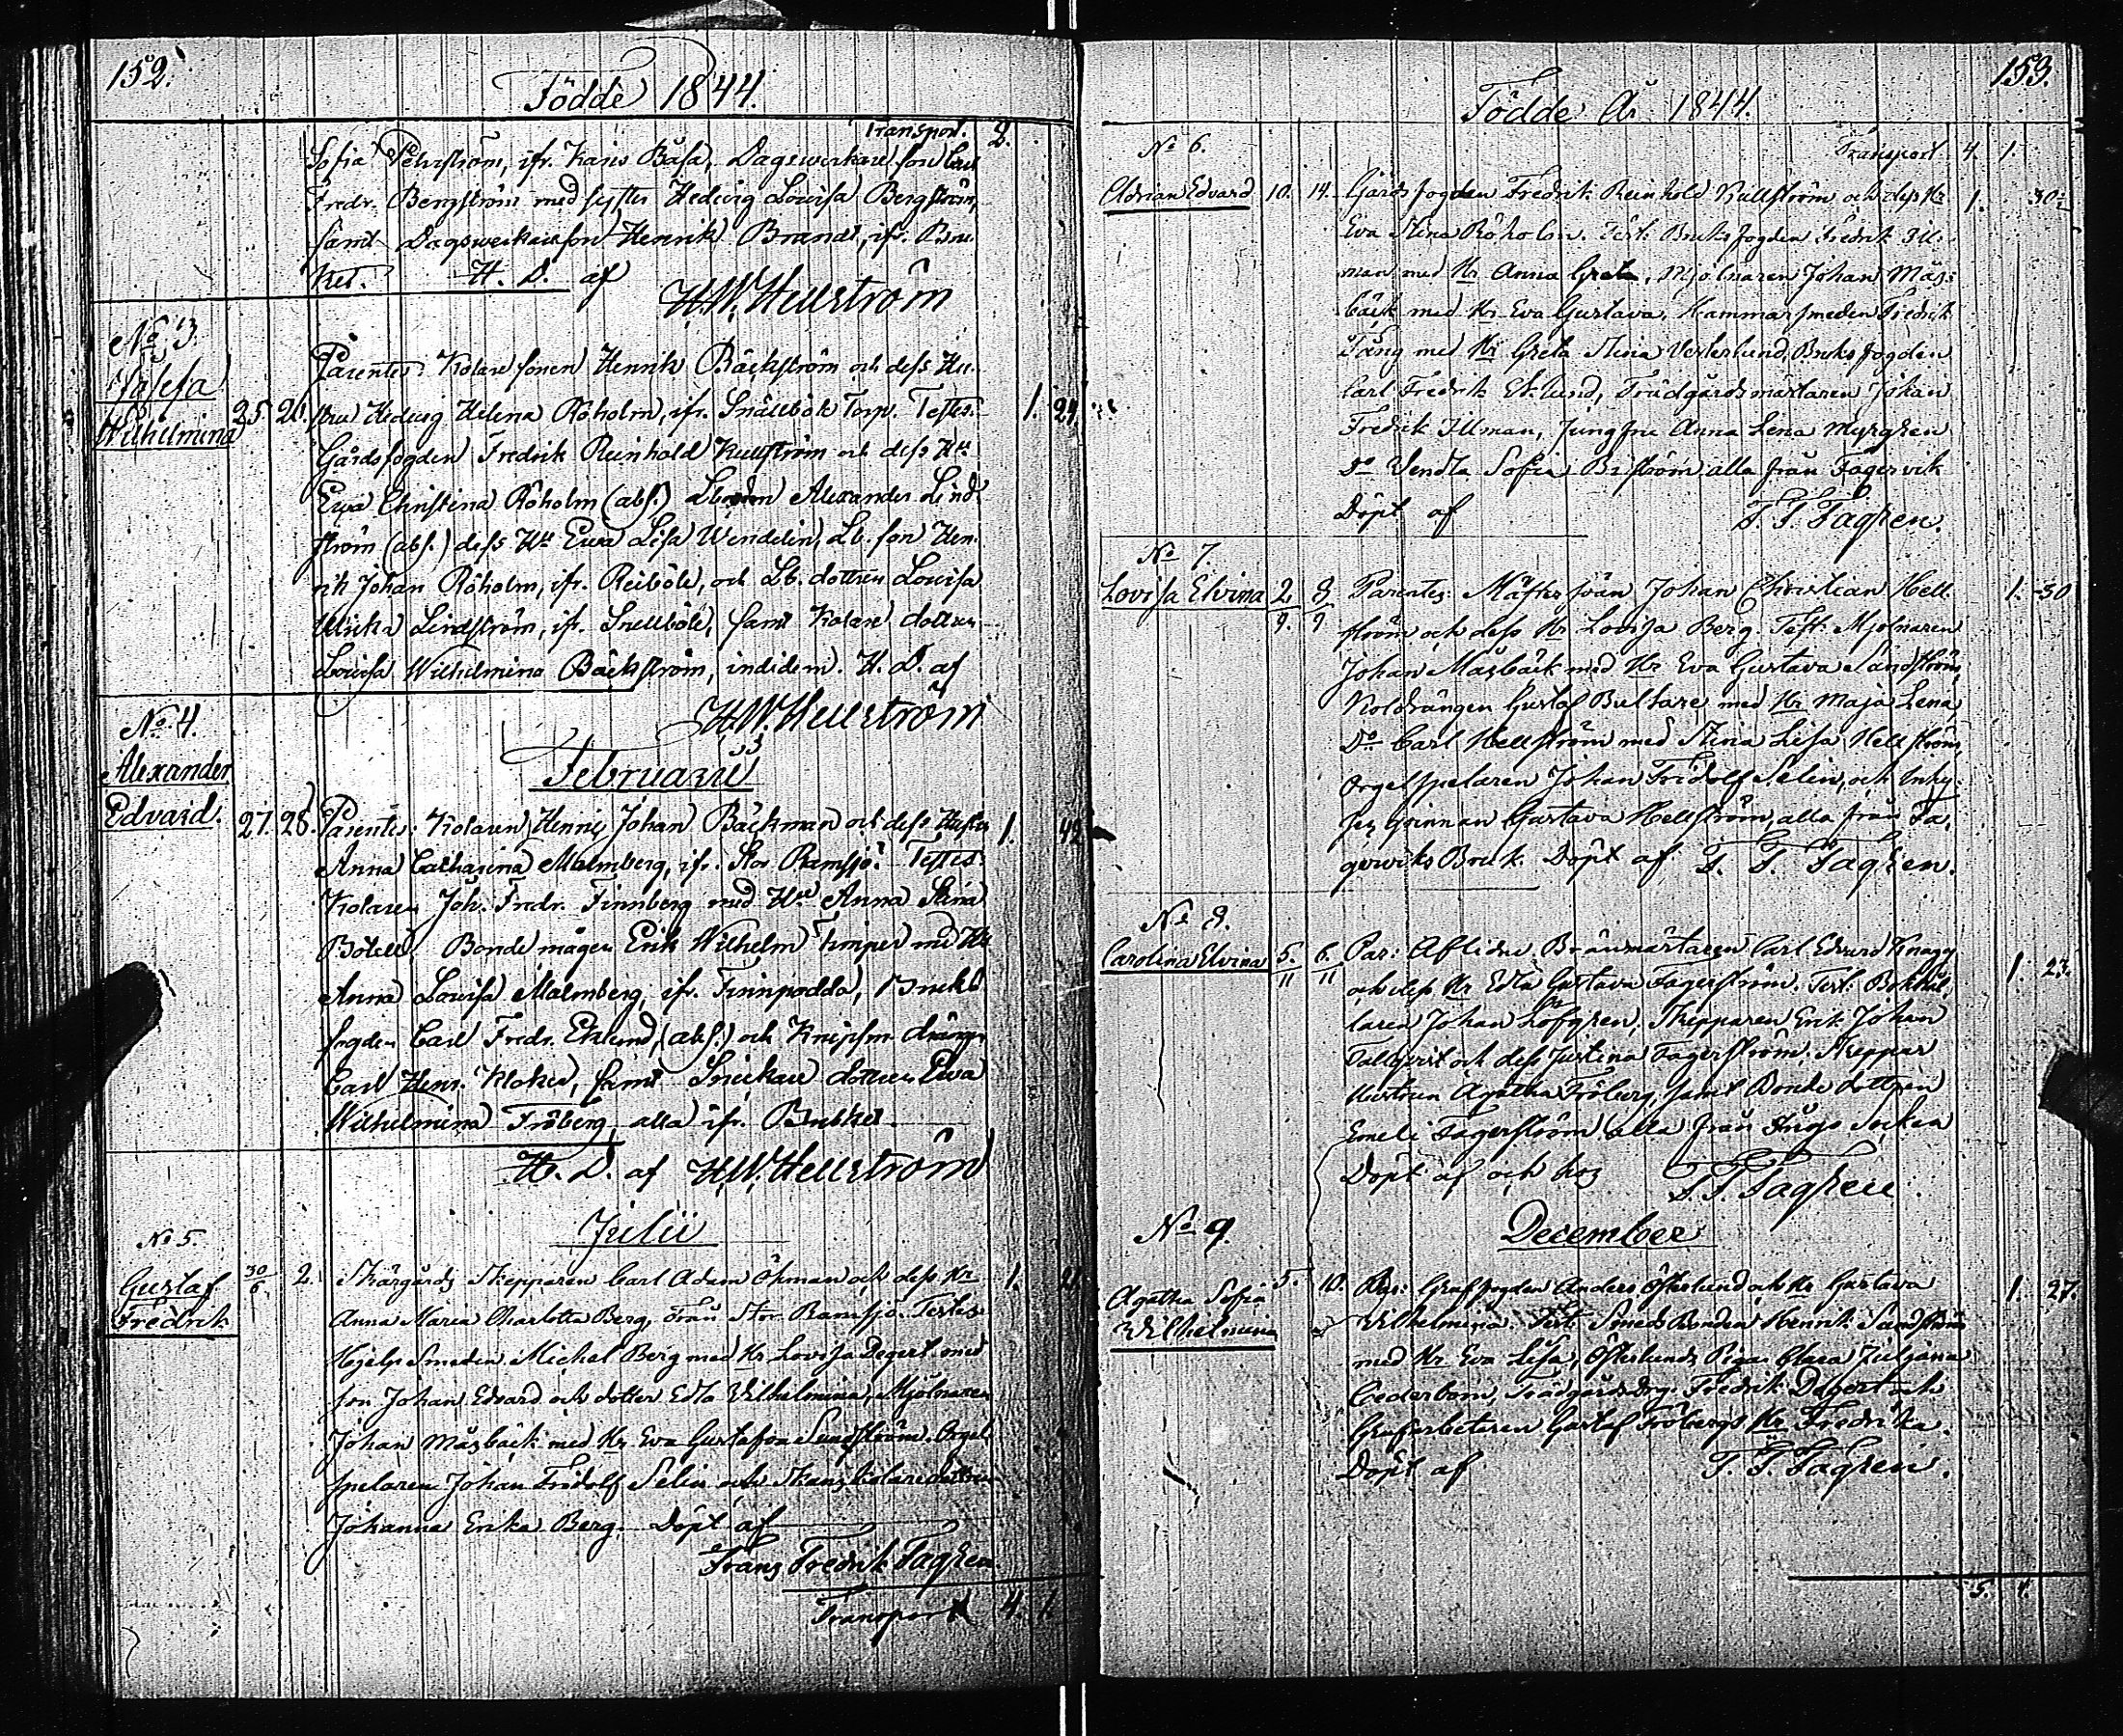 152.
Födde 1844.
Transport. 2.
Sofia Pehrström, ifr. Kains Båsa, Dagswerkare son Carl
Fredr. Bergström med syster Hedvig Lovisa Bergström,
samt Dagswerkareson Henrik Brandt, ifr. Bru-
ket. H. D. af
H.W. Hellström
No 3.
Josefa
Wilhelmina 25. 26.
Parentes: Kolare sonen Henrik Bäckström och dess Hu-
stru Hedvig Helena Röholm, ifr. Snällböle Torp. Testes: 1. 24.
Gårdsfogden Fredrik Reinhold Kullström och dess Hu
Ewa Christina Röholm (abs.) Alexander Lind-
ström (abs.) dess Hu Ewa Lisa Wendelin, Lb. son Hen-
rik Johan Röholm, ifr. Reiböle, och Lb. dottren Lovisa
Ulrika Lindström, ifr. Snellböle, samt Kolare dottren
Lovisa Wilhelmina Bäckström, indidem. H. D. af
H.W. Hellström
No 4.
Februarii
Alexander
Edvard. 27. 28.
Parentes: Kolaren Henric Johan Bäckman och dess Hustru 1. 42
Anna Catharina Malmberg, ifr. Stor Ramsjö. Testes:
Kolaren Joh. Fredr. Finnberg med Hu Anna Stina
Bonde mågen Erik Wilhelm med Hu
Anna Lovisa Malmberg, ifr. Finnpodda, Bruks
fogden Carl Fredr. Eklund, (abs.) och Knipsm. drängen
Carl Henr. samt Snickare dottren Ewa
Wilhelmina Fröberg, alla ifr. Bruket.
H. D. af H.W. Hellström
Julii
No 5.
Gustaf
Fredrik 30/6 2.
Skärgårds Skepparen Carl Adam Öhman och dess Hr 1.
Anna Maria Charlotta Berg, från Stor Ramsjö. Testes:
Hjelp Smeden Michel Berg med Hr Lovisa Degert med
son Johan Edvard och dotter Edla Wilhelmina, Mjölnaren
Johan Måsbäck med Hr Eva Gustafva Sundström. Orgel
spelaren Johan Fridolf Selin och Kolaredottren
Johanna Erika Berg. Döpt af
Franz Fredrik Fagren
Transport 4. 1.
153.
Födde År 1844.
No 6. Transport 4. 1.
Adrian Edvard 10. 14. Gårdsfogden Fredrik Reinhold Kullström och dess Hr 1. 30
Eva Stina Röholm. Test: Bruks fogden Fredrik Ill-
man med Hr Anna Greta, Mjölnaren Johan Mås-
bäck med Hr Eva Gustava, Hammarsmeden Fredrik
Fång med Hr Greta Stina Vesterlund, Bruks fogden
Carl Fredrik Eklund, Trädgårdsmästaren Johan
Fredrik Illman, Jungfru Anna Lena Myrgren
Do Vendla Sofia Biström alla från Fagervik
Döpt af F. F. Fagren.
No 7.
Lovisa Elvina 2/9. 8/9 Parentes: Mästersven Johan Christian Hell- 1. 30
ström och dess Hr Lovisa Berg. Test: Mjölnaren
Johan Måsbäck med Hr Eva Gustava Sandström,
Koldrängen Gustaf Bultare med Hr Maja Lena,
Do Carl Hellström med Stina Lisa Hellström,
Orgelspelaren Johan Fridolf Selin, och Inhy-
ses qvinnan Gustava Hellström, alla från Fa-
gerviks Bruk. Döpt af F. F. Fagren.
No 8.
Carolina Elvina 5./11 6./11 Par: Aflidne Brännmästaren Carl Edvard Knagg 1. 23.
och dess Hr Edla Gustava Fagerström. Test: Bokhål-
laren Johan Löfgren, Skepparen Erik Johan
Fallqvist och dess Justina Fagerström, Skeppar
Hustrun Agatha Fröberg, samt Bonde dottren
Emeli Fagerström alla från Ingo Socken
Döpt af och hos F. F. Fagren
No 9.
December
Agatha Sofia
Wilhelmina 5. 10. Par: Graffogden Anders Österlund och Hr Gustava 1. 27.
Wilhelmina. Test: Smeds Bonden Henrik Sandström
med Hr Eva Lisa, Österlunds Piga Clara Juliana
Cederbom, Trädgårds Drg. Fredrik Degert och
Grufarbetaren Gustaf Fröbergs Hr Fredrika.
Döpt af F. F. Fagren.
5. 4.